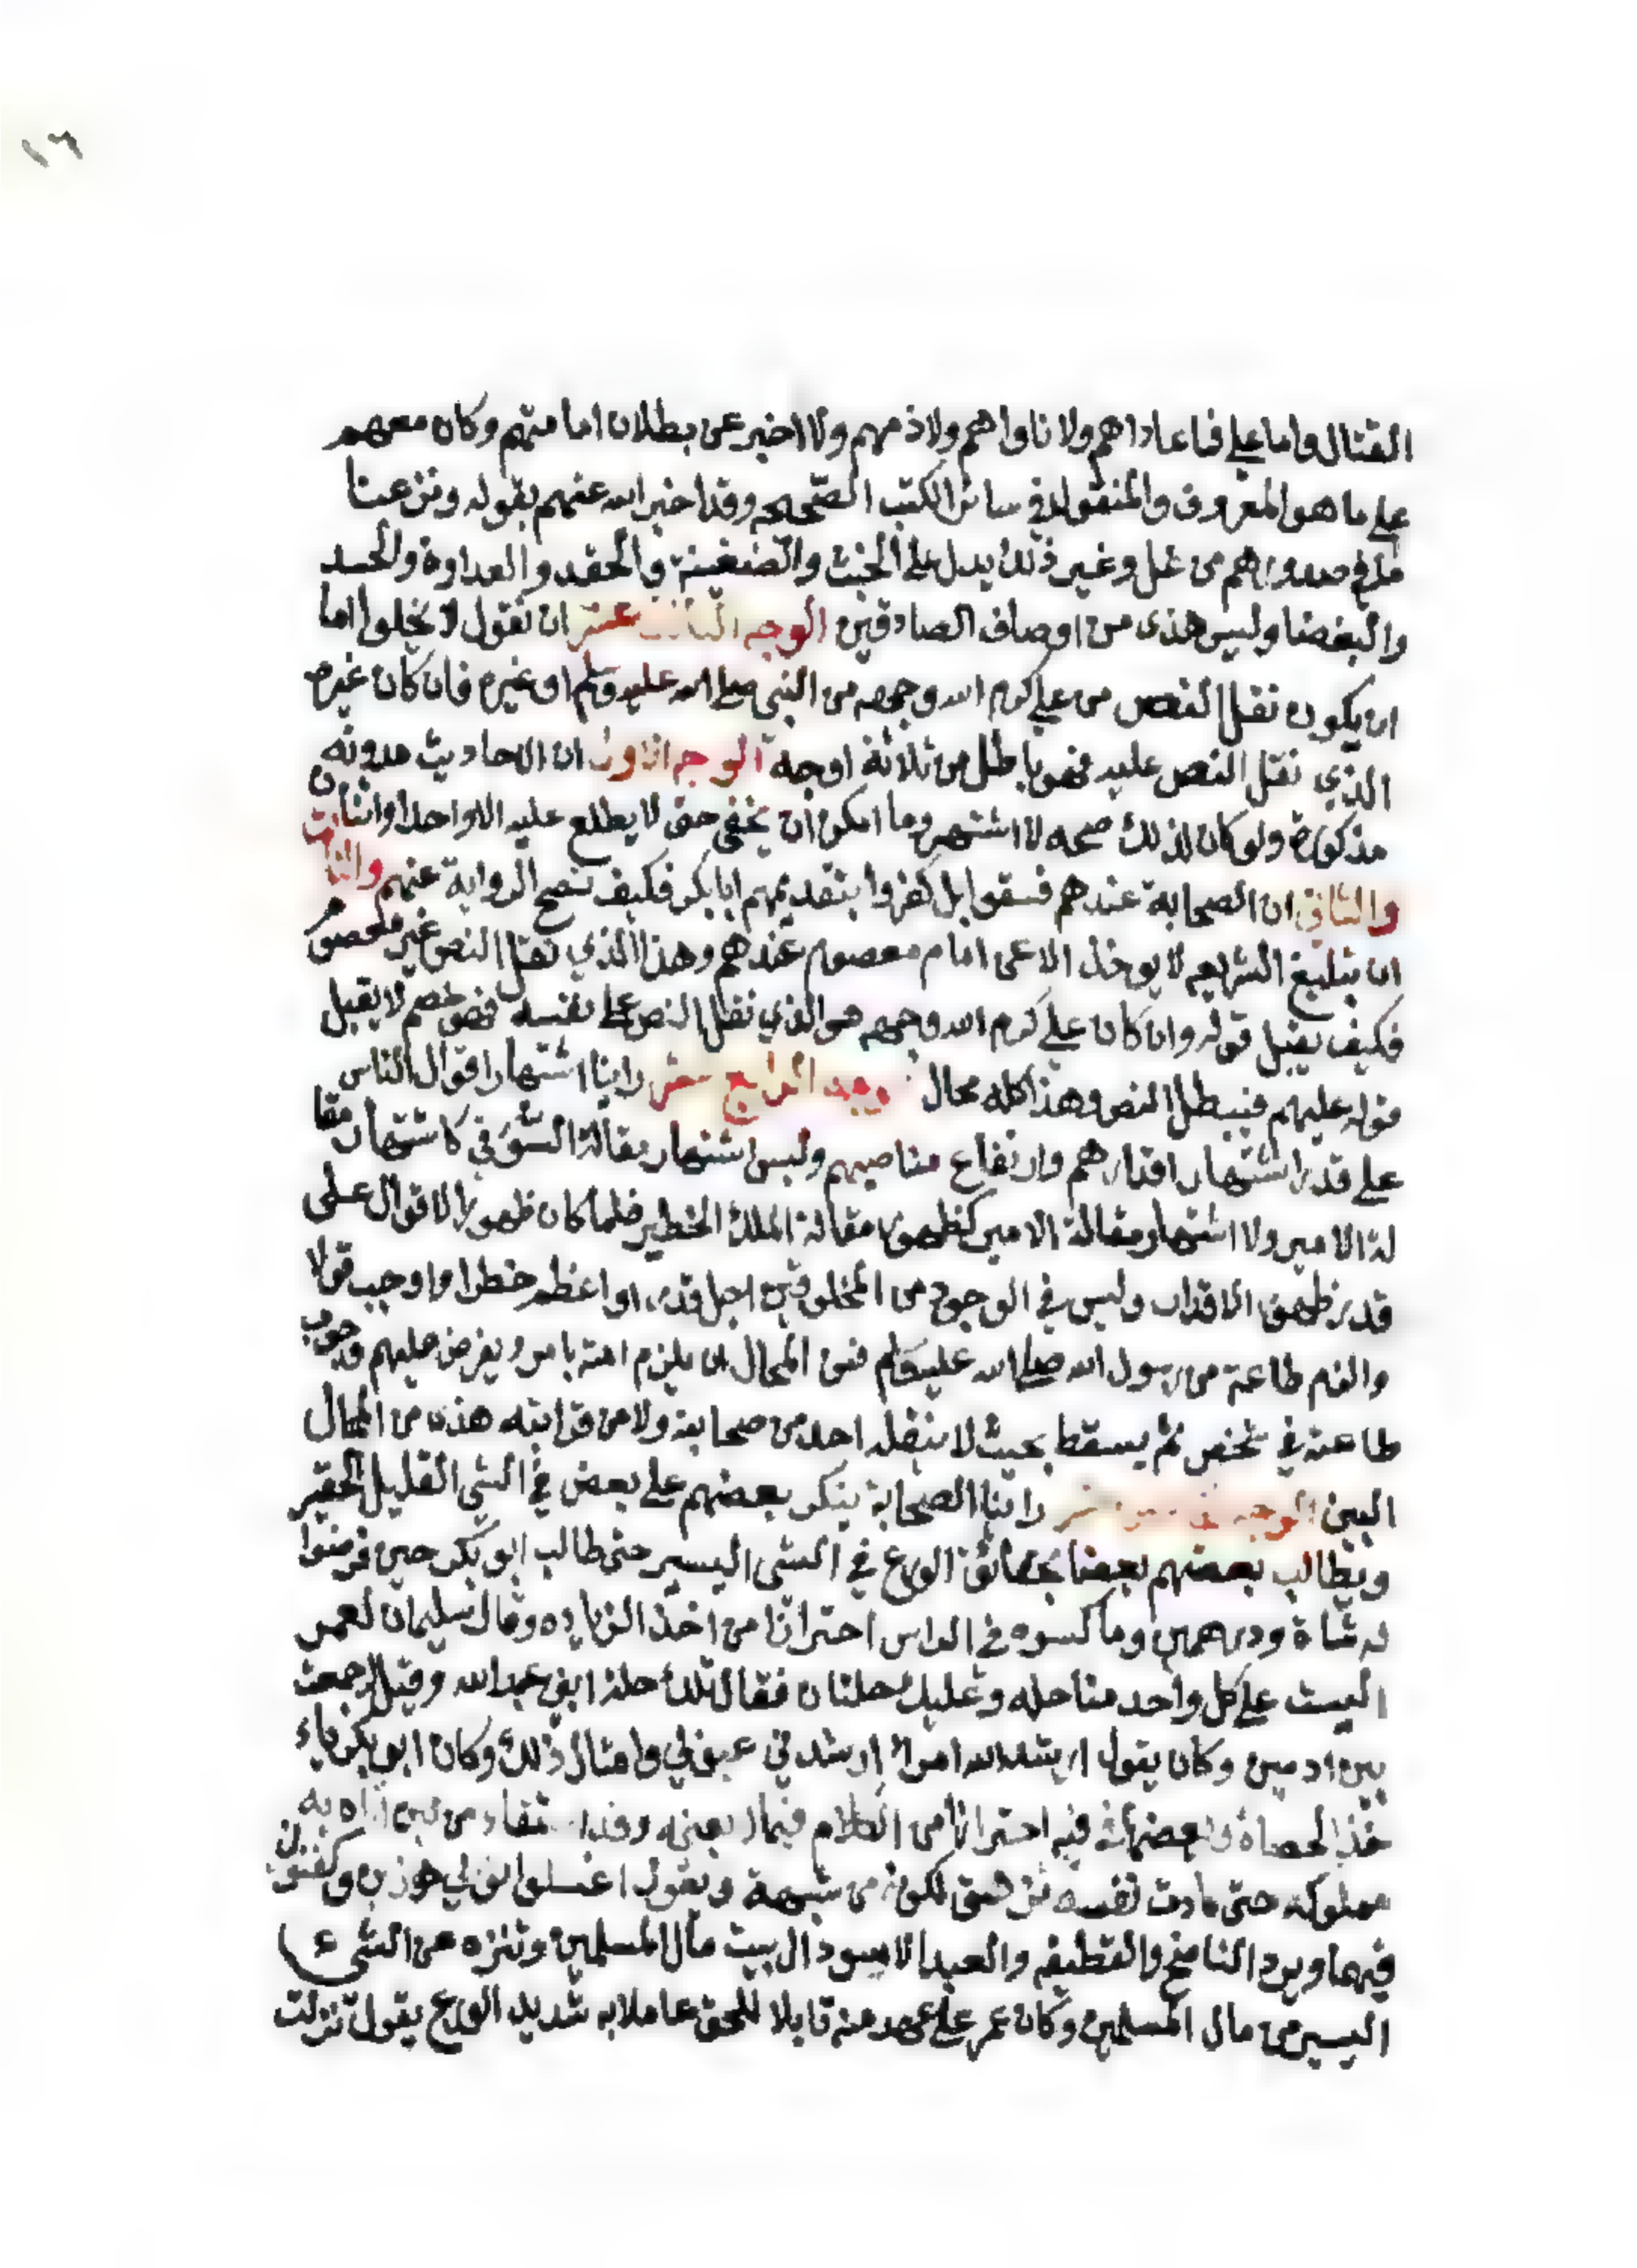 ١٦
القتال واما علي فما عاداهم ولا ناواهم ولا ذمهم ولا اخبر عن بطلان امامتهم وكان معهم
على ما هو المعروف والمنقول في سائر الكتب الصحيحه وقد اخبر الله عنهم بقوله ونزعنا
ما في صدورهم من غل وغير ذلك يدل على الخبث والضغينة والحقد والعداوة والحسد
والبغضا وليس هذى من اوصاف الصادقين الوجه الثالث عشر ان نقول لا يخلوا اما
ان يكون نقل النص من علي كرم الله وجهه من النبي صلى الله عليه وسلم او غيره فان كان غيره
الذي نقل النص عليه فهو باطل من ثلاثة اوجه الوجه الاول ان الاحاديث مدونه
مذكورة ولو كان لذلك صحه لا اشتهر وما امكن ان يخفى حتى لا يطلع عليه الا واحد او اثنان
والثاني ان الصحابة عندهم فسقوا بل كفروا بتقديمهم ابا بكر فكيف تصح الرواية عنهم والثالث
ان تبليغ الشريعه لا يوخذ الا عن امام معصوم عندهم وهذا الذي نقل النص غير معصوم
فكيف يقبل قوله وان كان علي كرم الله وجهه هو الذي نقل النص على نفسه فهو خصم لا يقبل
قوله عليهم فيبطل النص وهذا كله محال وجه الرابع عشر راينا اشتهار اقوال الناس
على قدر اشتهار اقدارهم وارتفاع مناصبهم وليس اشتهار مقالة السوقي كاشتهار مقا
لة الامير ولا اشتهار مقالة الامير كظهور مقالة الملك الخطير فلما كان ظهور الاقوال على
قدر ظهور الاقدار وليس في الوجود من المخلوقين اجل قدر او اعظم خطرا واوجب قولا
والزم طاعة من رسول الله صلى الله عليه وسلم فمن المحال ان يلزم امته بامر ويفرض عليهم وجوب
طاعة في شخص ثم يسقط بحيث لا ينقله احد من صحابة ولا من قرابته هذى من المحال
البين الوجه عشر راينا الصحابة ينكر بعضهم على بعض في الشي القليل الحقير
ويطالب بعضهم بعضا بحقائق الورع في الشي اليسير حتى طالب ابو بكر حين فرضوا
له شاة ودرهمين وما كسوه في الراس احترازا من اخذ الزياده وقال سليمان لعمر
اليست على كل واحد منا حله وعليك حلتان فقال تلك حلة ابني عبد الله وقيل جمعت
بين ادمين وكان يقول ارشد الله امرا ارشدني عيوبي وامثال ذلك وكان ابو بكر ياء
خذ الحصاة فيه احترازا من الكلام فيما لا يعنيه من لبن اتاه به
مملوكه حتى كادت نفسه تزهق لكونه من شبهة ويقول اغسلوا ثوبي هذين وكفنون
فيهما ويرد الناضح والقطيفه والعبد الاسود ال بيت مال المسلمين وتنزه عن الشي
اليسير من مال المسلمين وكان عمر على عهد منه قايلا للحق عاملا به شديد الورع يقول تنزلت